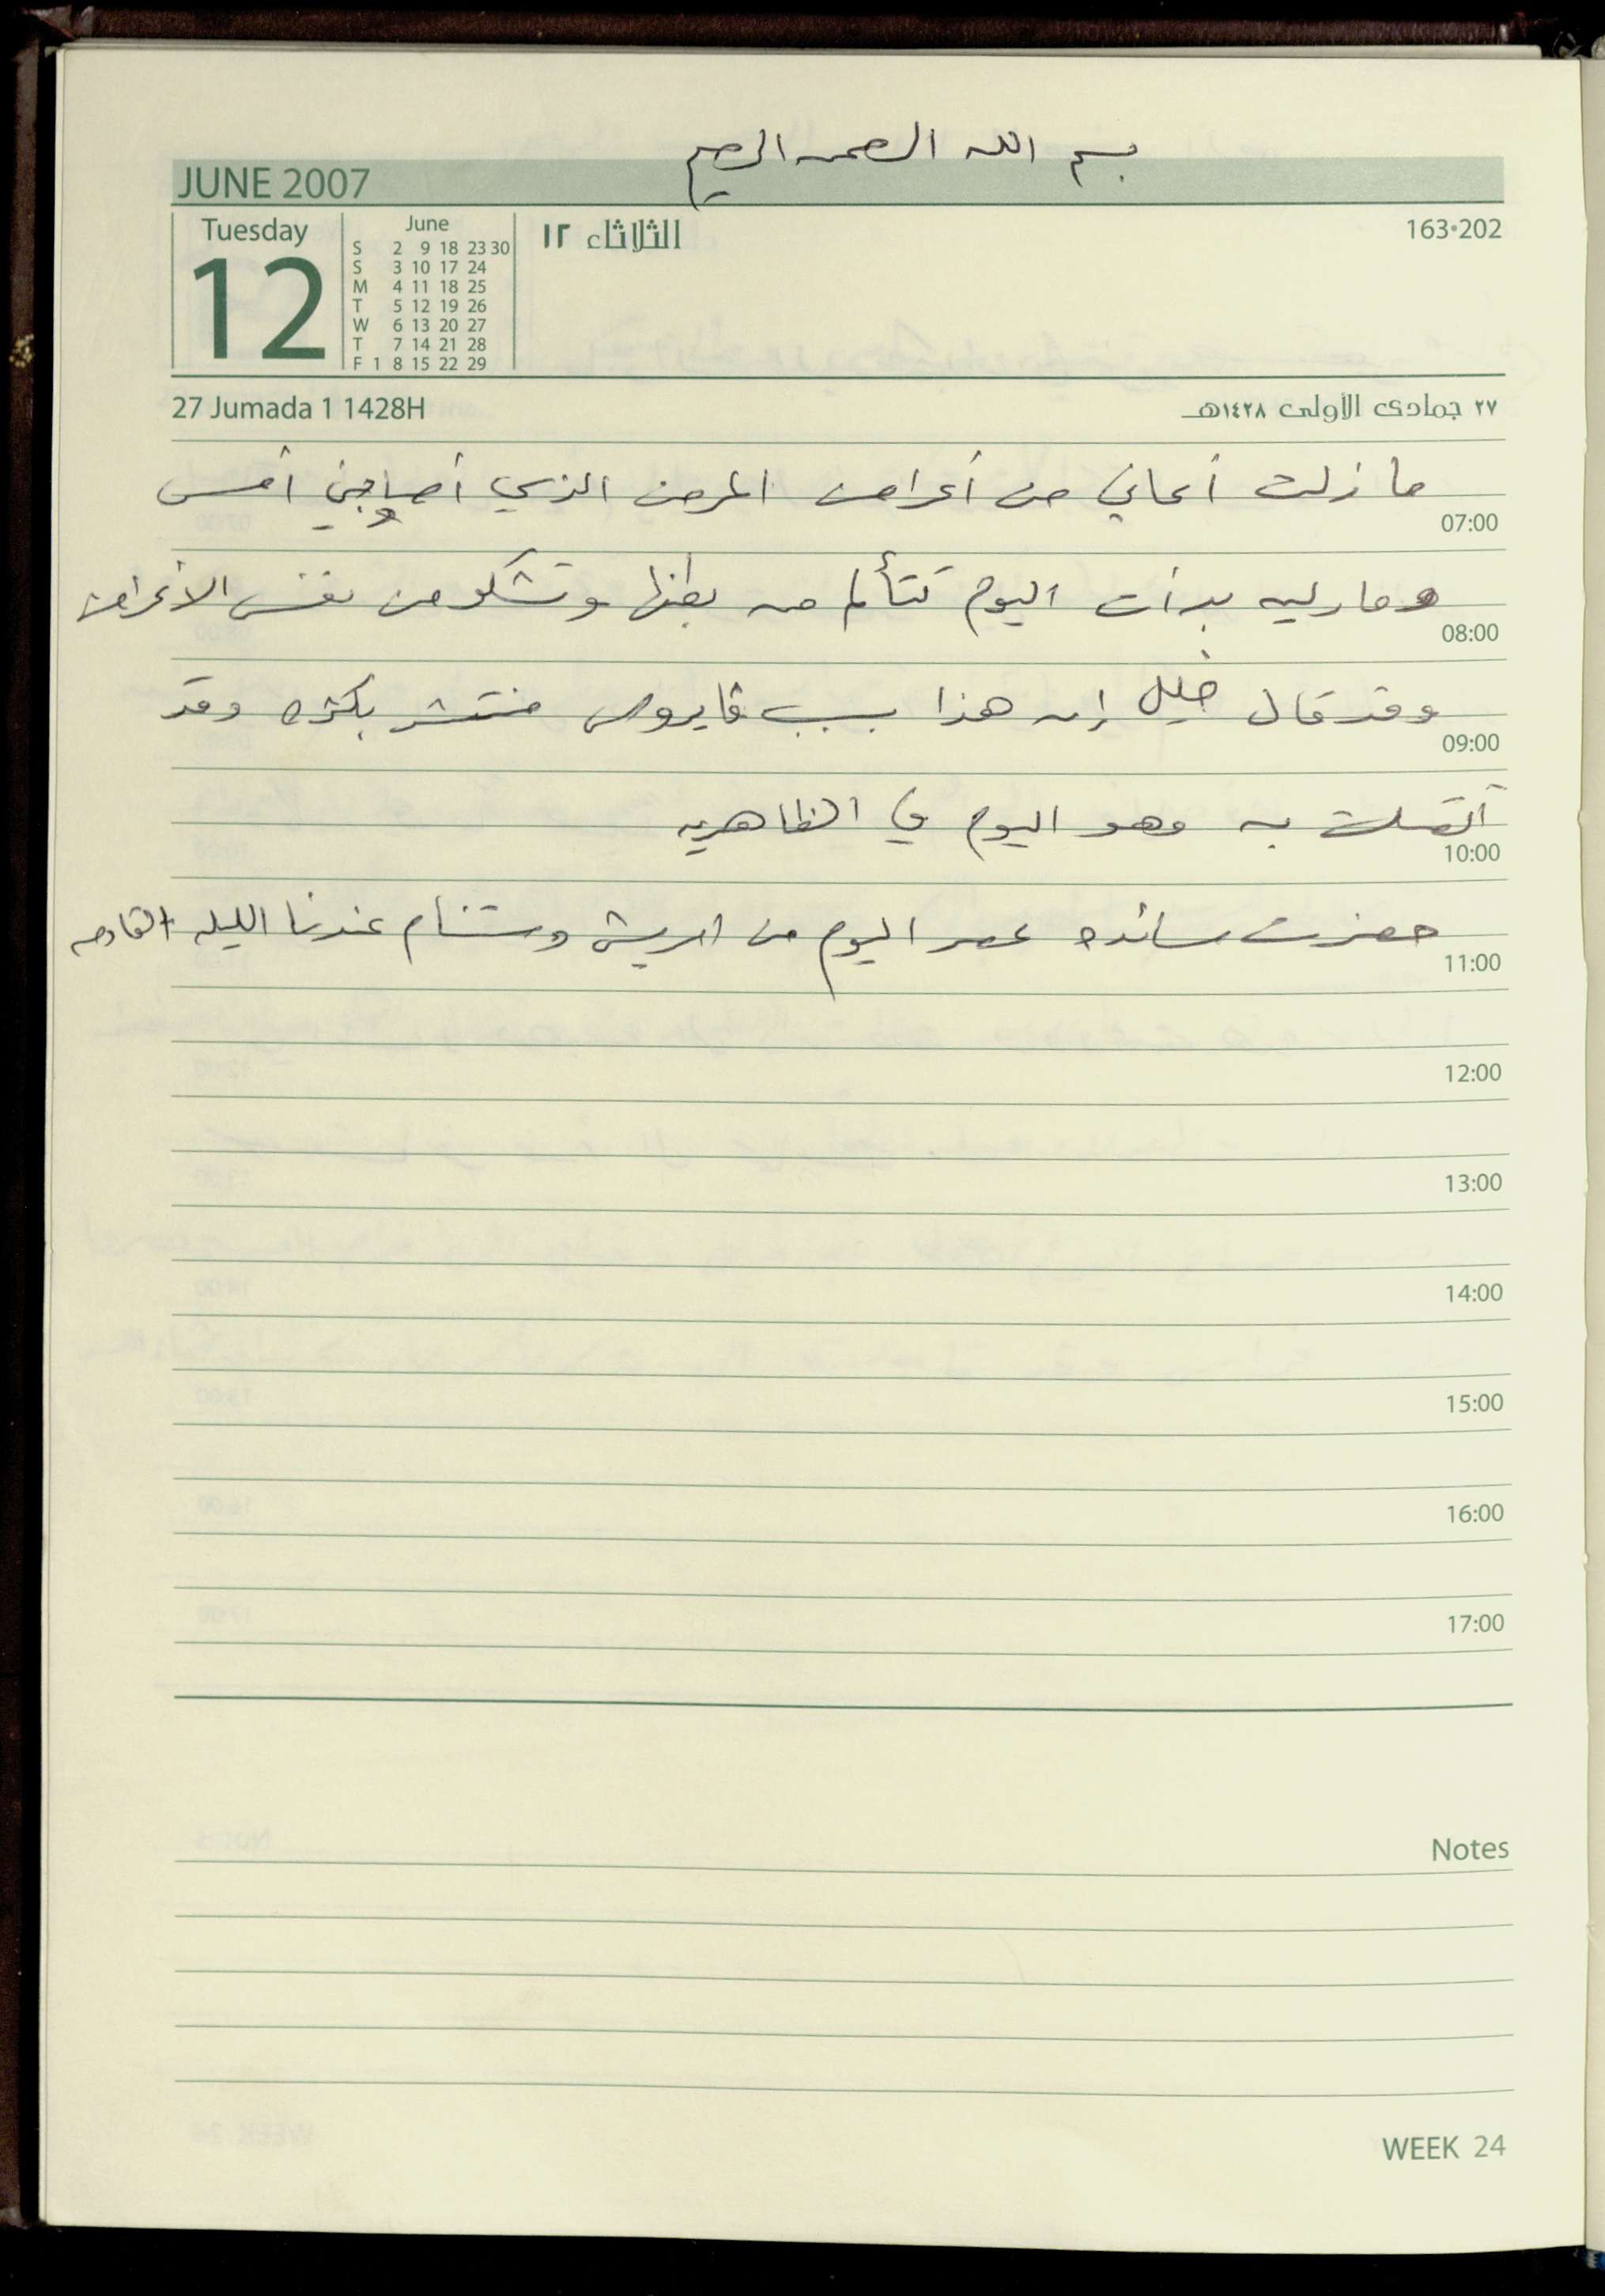 بسم الله الرحمن الرحيم
JUNE 2007
Tuesday
12
June
S 2 9 18 23 30
S 3 10 17 24
M 4 11 18 25
T 5 12 19 26
W 6 13 20 27
T 7 14 21 28
F 1 8 15 22 29
الثلاثاء ١٢
163•202
27 Jumada 1 1428H
٢٧ جمادى الأولى ١٤٢٨هـ
ما زلت أعاني من أعراض المرض الذي أصابني أمس
07:00
وماريه بدأت اليوم تتألم من بطنها وتشكو من نفس الأعراض
08:00
وقد قال خليل إن هذا بسبب فايروس منتشر بكثره وقد
09:00
أتصلت به وهو اليوم في الظاهريه
10:00
حضرت سائده عصر اليوم من الريش وستنام عندنا الليله القادمه
11:00
12:00
13:00
14:00
15:00
16:00
17:00
Notes
WEEK 24